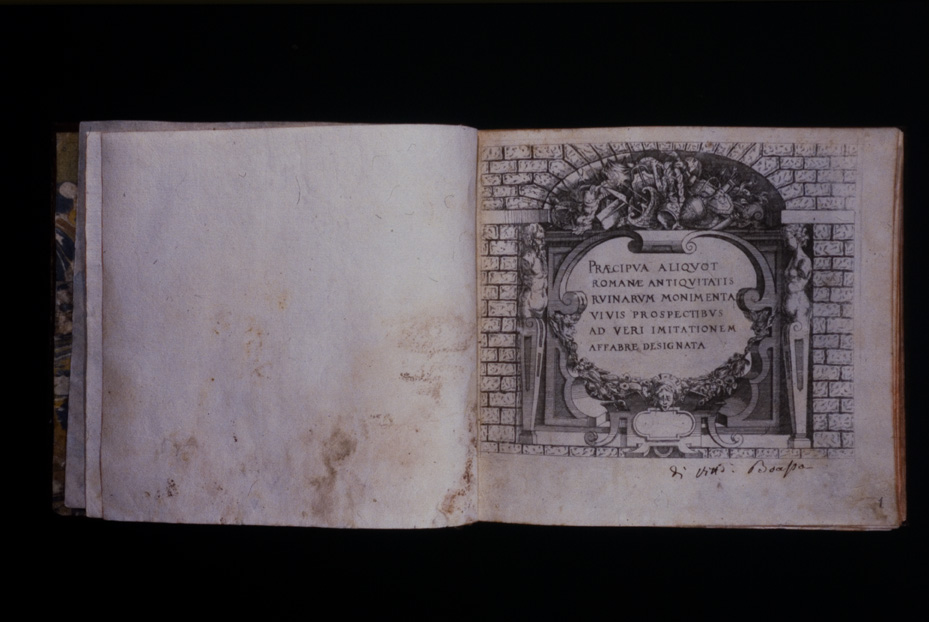 PRÆCIPVA ALIQVOT
ROMANÆ ANTIQVITATIS
RVINARVM MONIMENTA
VIVIS PROSPECTIBVS
AD VERI IMITATIONEM
AFFABRE DESIGNATA
di